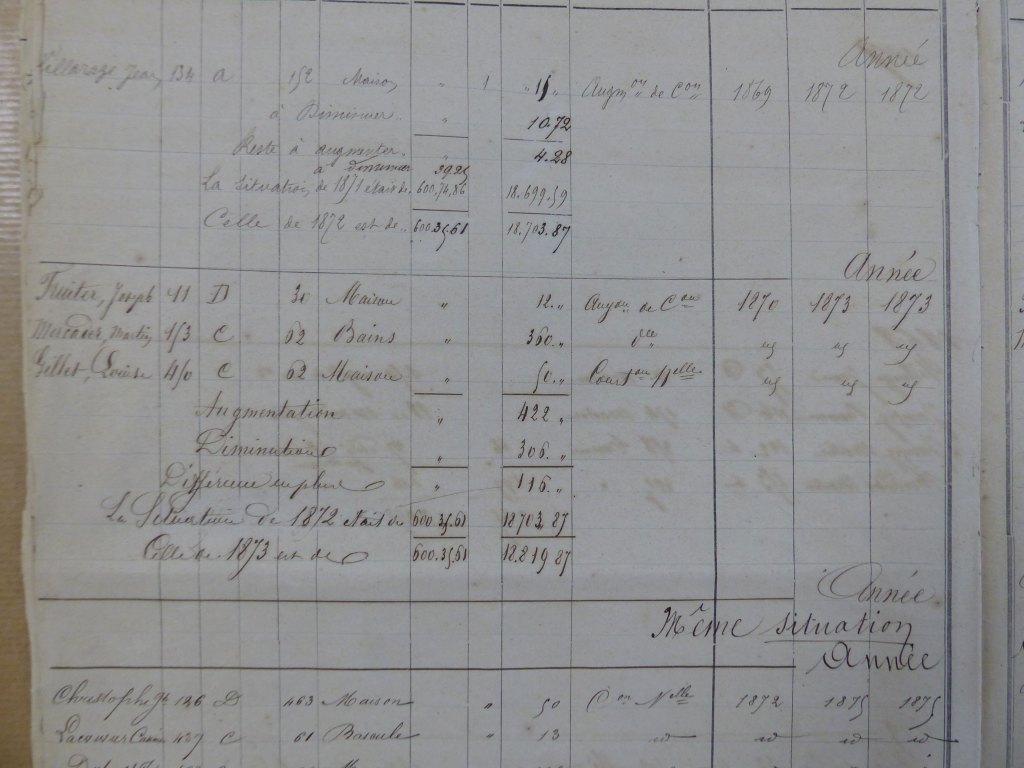 Année
Jean 134 a 152 Maison " 1 " 15 " Augm on de Con 1869 1872 1872
à Diminuer. " 10.72
Reste à augmenter. " 4.28
à diminuer 39.25
La Situation de 1871 était de. 600.74,86 18.699.59
Celle de 1872 est de.. 600.35.61 18.703.87
Année
Joseph 11 D 30 Maison " 12. " Augon de Con 1870 1873 1873
Mercader, Martin 153 C 62 Bains " 360. " dlle
Louise 450 C 62 Maison " 50. " Conston Nlle
Augmentation " 422 "
Diminution " 306. "
Différence en plus " 116. "
La Situation de 1872 était de 600.35.61 18703.87
Celle de 1873 est de 600.35.61 18.819 87
Année
Même situation
Année
Christophe 126 D 463 Maison " 50 Con Nlle 1872 1875 1875
437 C 61 Bascule " 13 id id id id